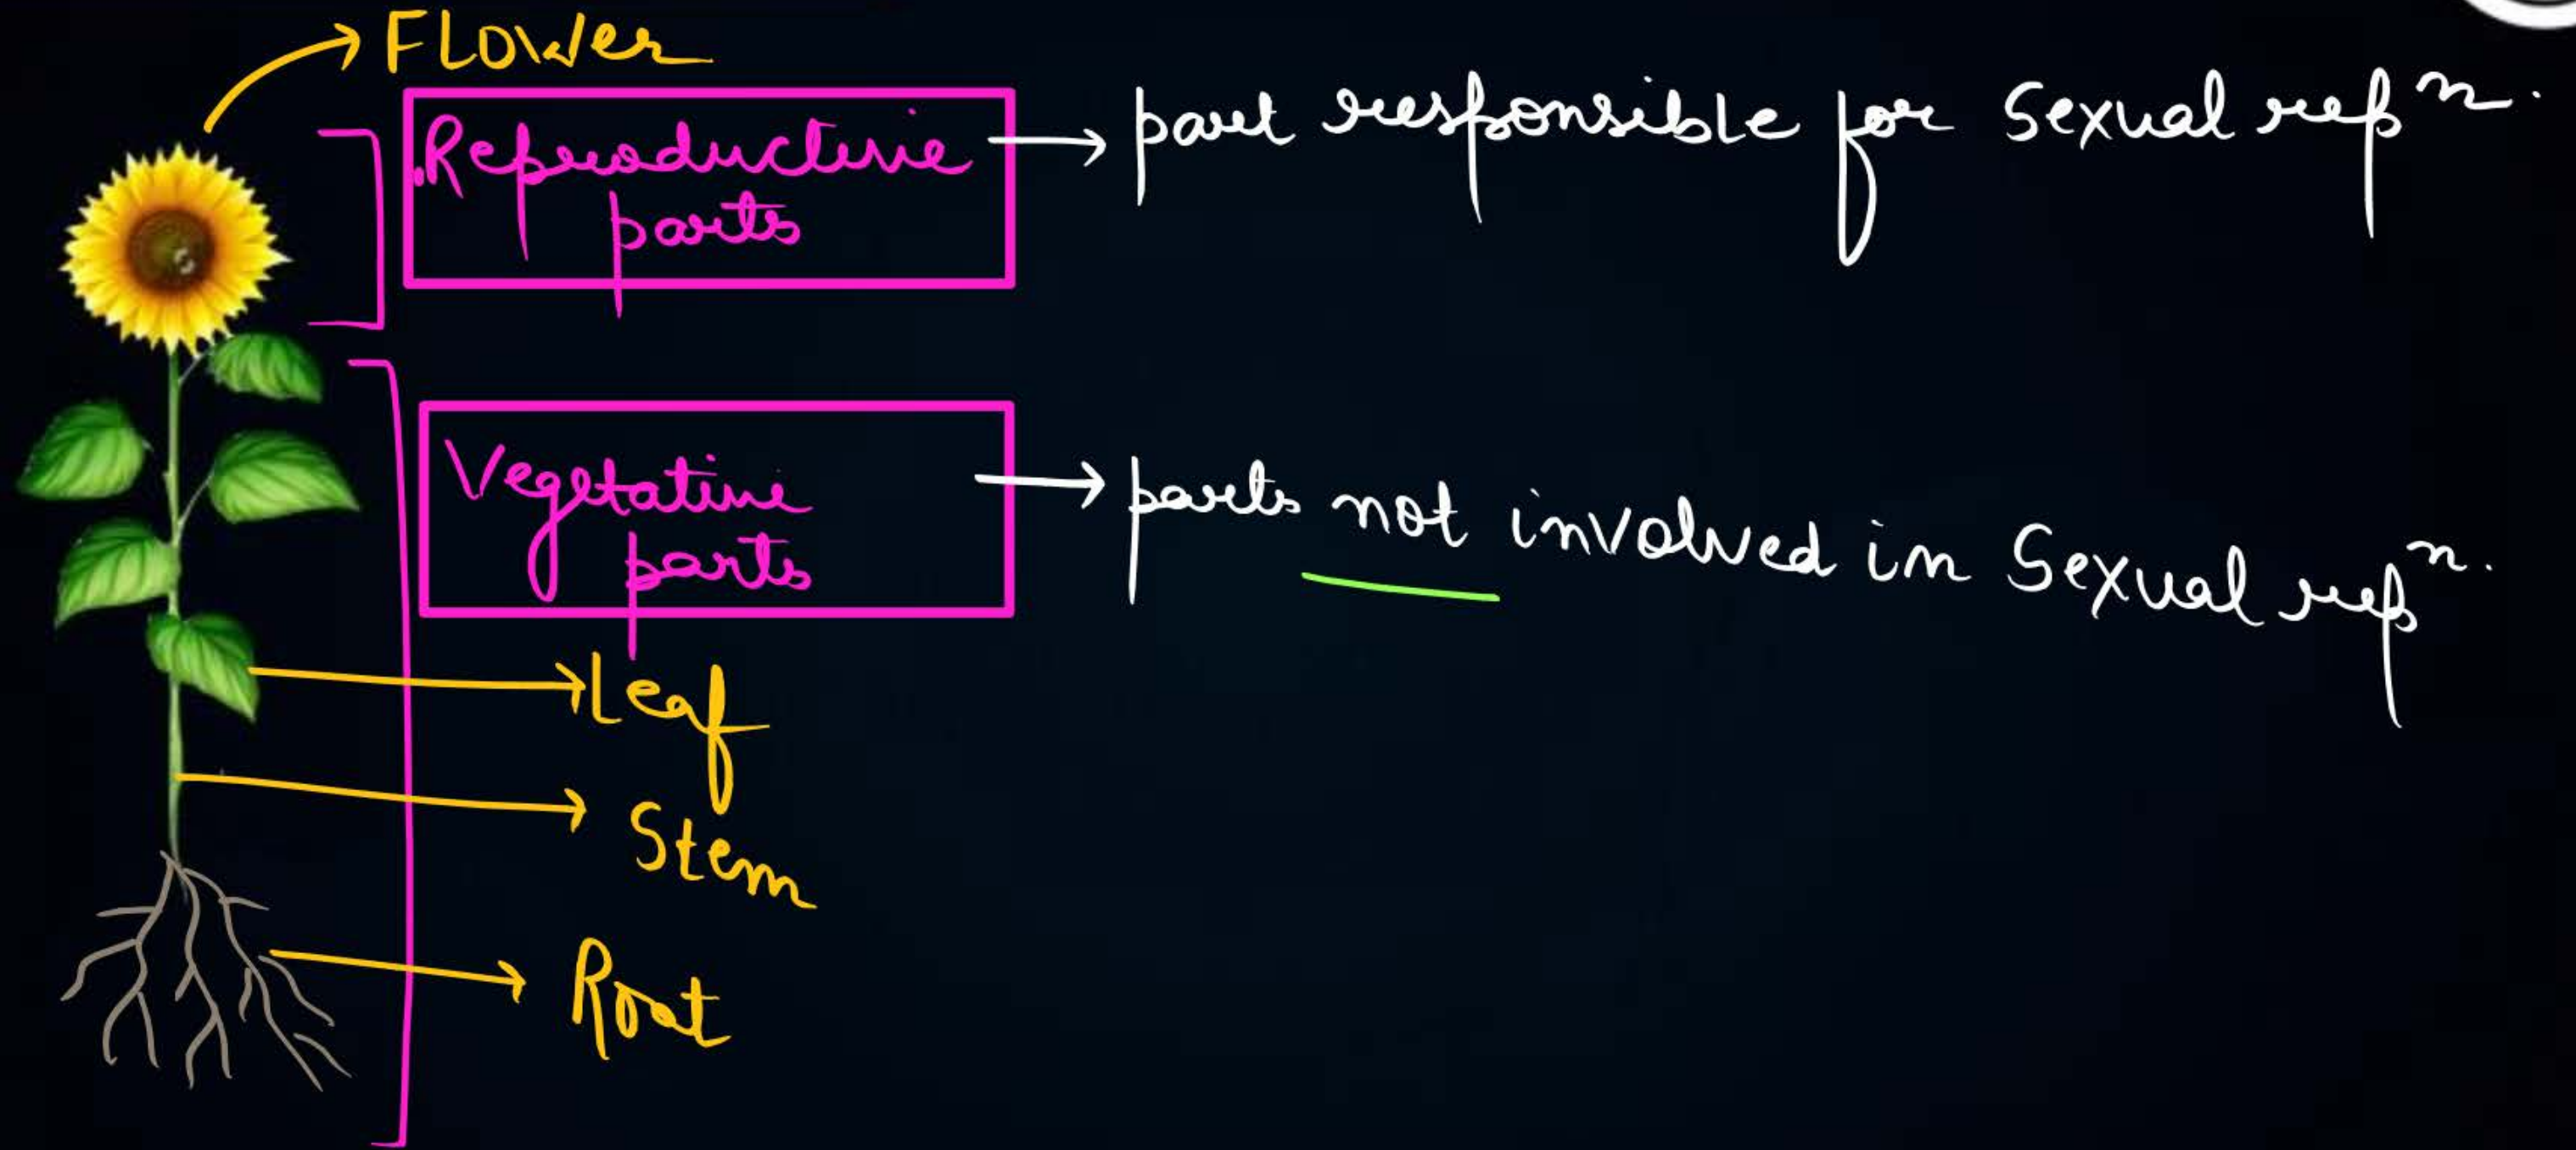 FLOWER
Reproductive
parts
→ part responsible for Sexual repⁿ.
Vegetative
parts
→ parts not involved in Sexual repⁿ.
Leaf
Stem
Root